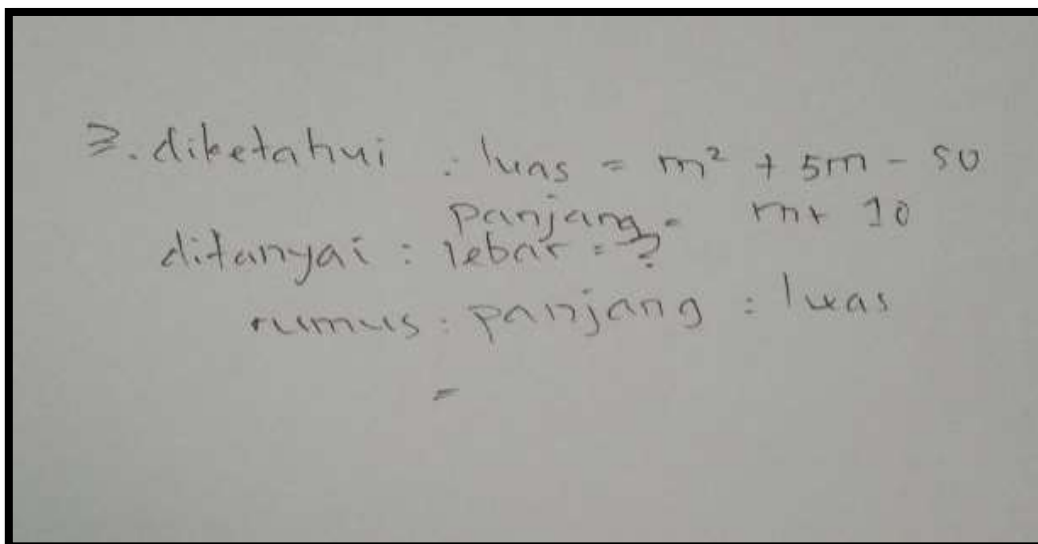 3. diketahui : luas = m² + 5m - 50
panjang = m + 10
ditanyai : lebar = ?
rumus : panjang : luas
=